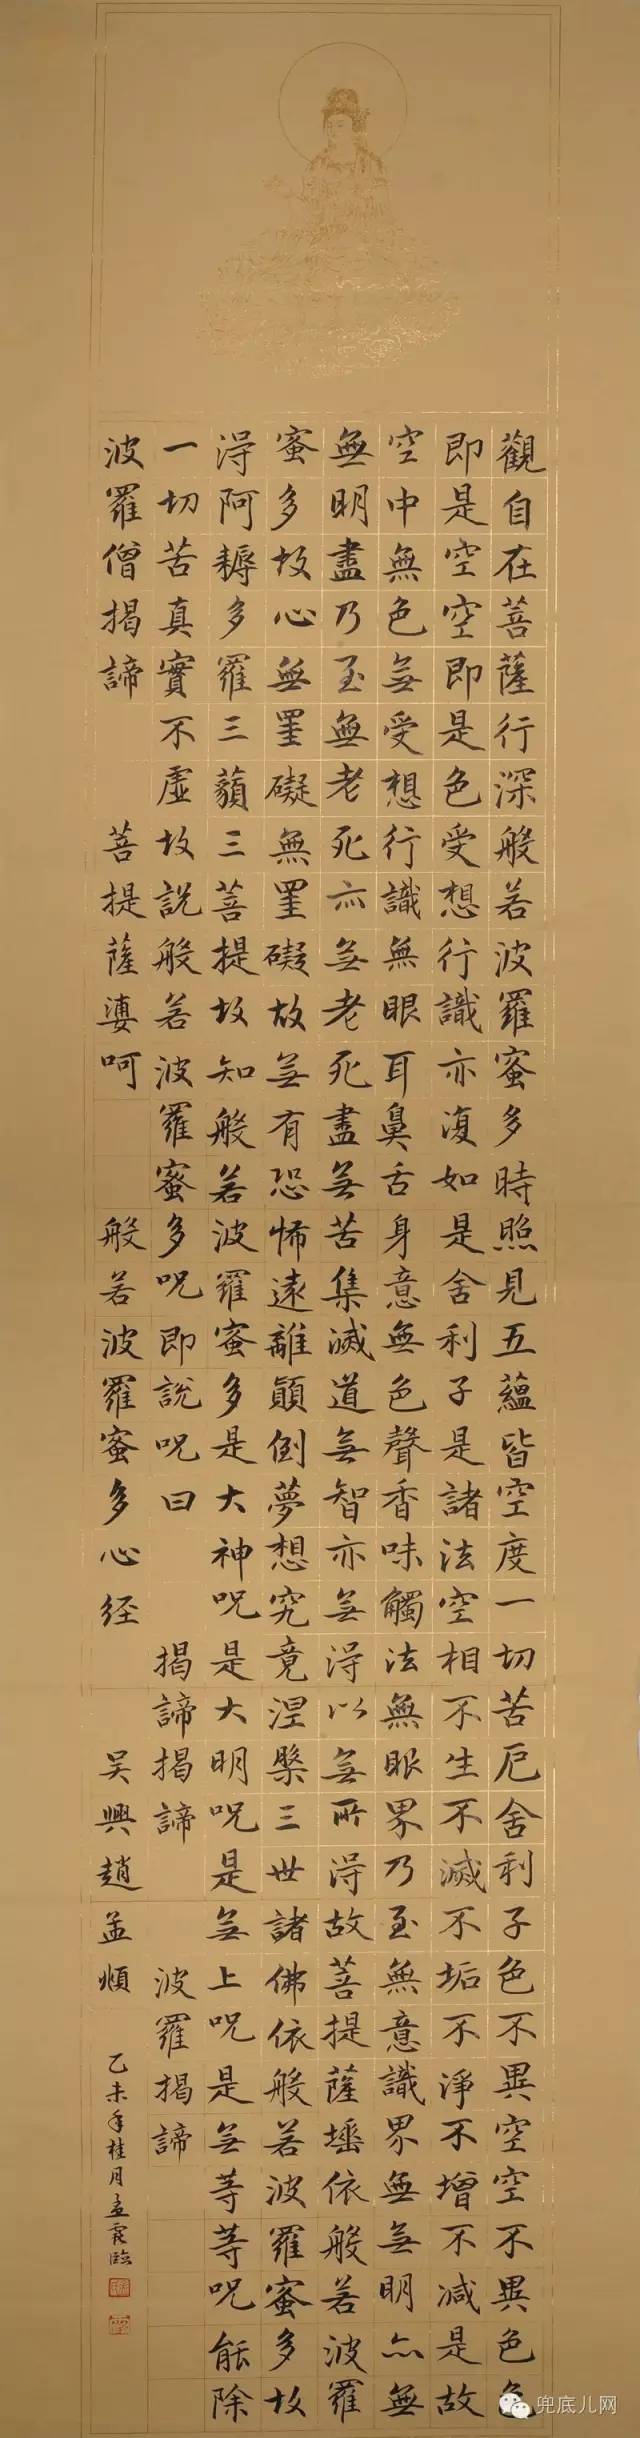 觀自在菩薩行深般若波羅蜜多時照見五蘊皆空度一切苦厄舍利子色不異空空不異色色
即是空空即是色受想行識亦復如是舍利子是諸法空相不生不滅不垢不淨不增不減是故
空中無色無受想行識無眼耳鼻舌身意無色聲香味觸法無眼界乃至無意識界無無明亦無
無明盡乃至無老死亦無老死盡無苦集滅道無智亦無得以無所得故菩提薩埵依般若波羅
蜜多故心無罣礙無罣礙故無有恐怖遠離顛倒夢想究竟涅槃三世諸佛依般若波羅蜜多故
得阿耨多羅三藐三菩提故知般若波羅蜜多是大神呪是大明呪是無上呪是無等等呪能除
一切苦真實不虛故說般若波羅蜜多呪即說呪曰 揭諦揭諦 波羅揭諦
波羅僧揭諦 菩提薩婆呵 般若波羅蜜多心経 吴興趙孟頫
乙未年桂月臨
兜底儿网